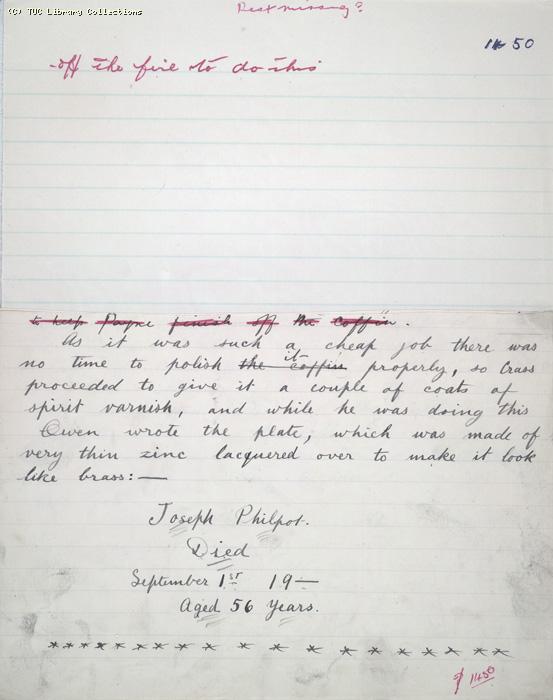 (C) TUC Library Collections
Rest missing?
50
off the fire to do this
to help Payne finish off the coffin.
As it was such a cheap job there was
no time to polish the coffin it properly, so Crass
proceeded to give it a couple of coats of
spirit varnish, and while he was doing this
Owen wrote the plate, which was made of
very thin zinc lacquered over to make it look
like brass:—
Joseph Philpot.
Died
September 1st 19—
Aged 56 Years.
* * * * * * * * * * * * * * * * * * *
1450